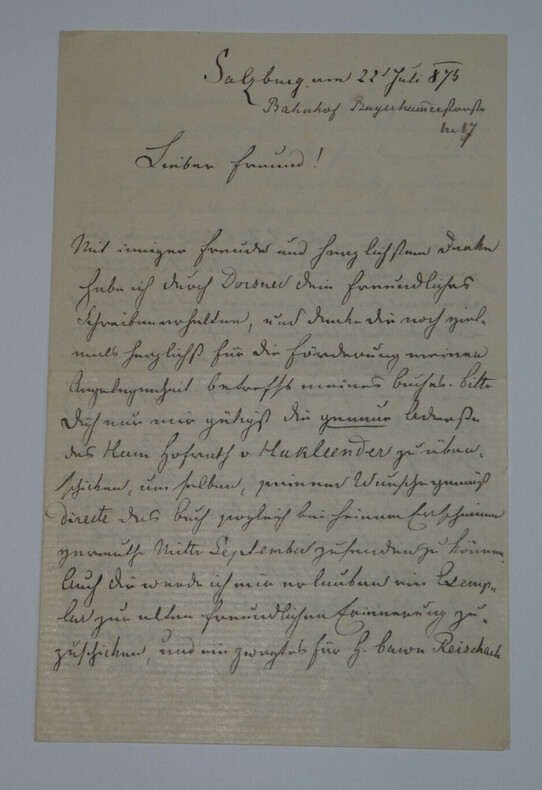 Salzburg am 22t Juli 875
Bahnhof
No 17
Lieber Freund!
Mit inniger Freude und herzlichstem Danke
habe ich durch Dorsner dein freundliches
Schreiben erhalten, und danke dir noch viel-
mals herzlichst für die Förderung meiner
Angelegenheit betreffs meines Buches. Bitte
Dich nur mir gütigst die genaue Adresse
des Herrn Hofrath v zu über-
schicken, um selben, seinem Wunsche gemäß
directe das Buch sogleich bei seinem Erscheinen
Mitte September zusenden zu können.
Auch dir werde ich mir erlauben ein Exemp-
lar zur alten freundlichen Erinnerung zu-
zuschicken, und ein zweytes für H. Baron Reischach